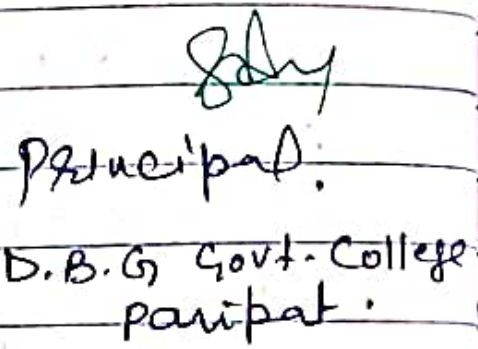 Principal.
D.B.G Govt. College
panipat.